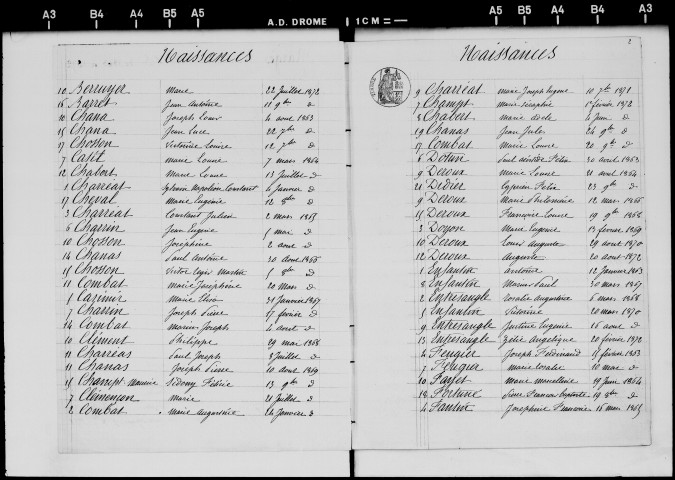 A3 B4 A4 B5 A5 A.D. DROME 1 CM A5 B5 A4 B4 A3
Naissances
10 Berruyer Marie 22 Juillet 1872
16 Barret Jean Antoine 11 9bre d
10 Chana Joseph Louis 4 aout 1863
15 Chana Jean Luce 22 7bre d
17 Chosson Victorine Louise 12 7bre d
7 Catil Marie Louise 7 mars 1864
12 Chabert Marie Louise 13 Juillet d
1 Charréat Sylvain Napoléon Constant 6 Janvier d
17 Cheval Marie Eugénie 12 8bre d
3 Charréat Constant Julien 2 mars 1865
6 Charrin Jean Eugène 5 mai d
10 Chosson Josephine 2 aout d
14 Chanas Paul Antoine 30 aout 1866
15 Chosson Victor 5 8bre d
11 Combat Marie Joséphine 20 mars d
5 Casimir Marie 31 Janvier 1867
7 Charrin Joseph Pierre 17 février d
14 Combat Marius Joseph 4 aout d
10 Clément Philippe 29 mai 1868
11 Charréas Paul Joseph 3 Juillet d
11 Chanas Joseph Pierre 10 aout 1869
15 Champt Maurice Sidony 13 9bre d
7 Clémençon Marie 21 Juillet d
2 Combat Marie augustine 24 Janvier d
2
Naissances
9 Charréat Marie Joseph Eugene 10 7bre 1871
7 Champt Marie Séraphie 1er février 1872
8 Chabert Marie adele 4 Juin d
19 Chanas Jean Jules 24 9bre d
17 Combat Marie Louise 20 9bre d
6 Paul 30 avril 1863
9 Deroux Marie Louise 21 avril 1864
21 Didier Cyprien Felix 23 9bre d
9 Deroux Marie Philomène 12 mai 1866
15 Deroux Françoise Louise 19 9bre 1868
3 Doyon Marie Eugenie 13 février 1869
10 Deroux Louis Auguste 29 aout 1870
12 Deroux Auguste 20 aout 1872
1 Enfantin Antoine 12 Janvier 1863
8 Enfantin Marius Paul 30 mars 1867
2 Entresangle Rosalie augustine 6 mars 1868
5 Enfantin Victorine 20 mars 1870
9 Entresangle Justine Eugenie 16 aout d
13 Entresangle Zélie Angélique 20 février 1872
4 Feugier Joseph Ferdinand 11 février 1863
7 Feugier Marie Rosalie 10 mai d
10 Fayet Marie Marcelline 19 Juin 1864
18 Fortuné Pierre Francois 19 8bre d
4 Fantin Josephine Francoise 16 mars 1865